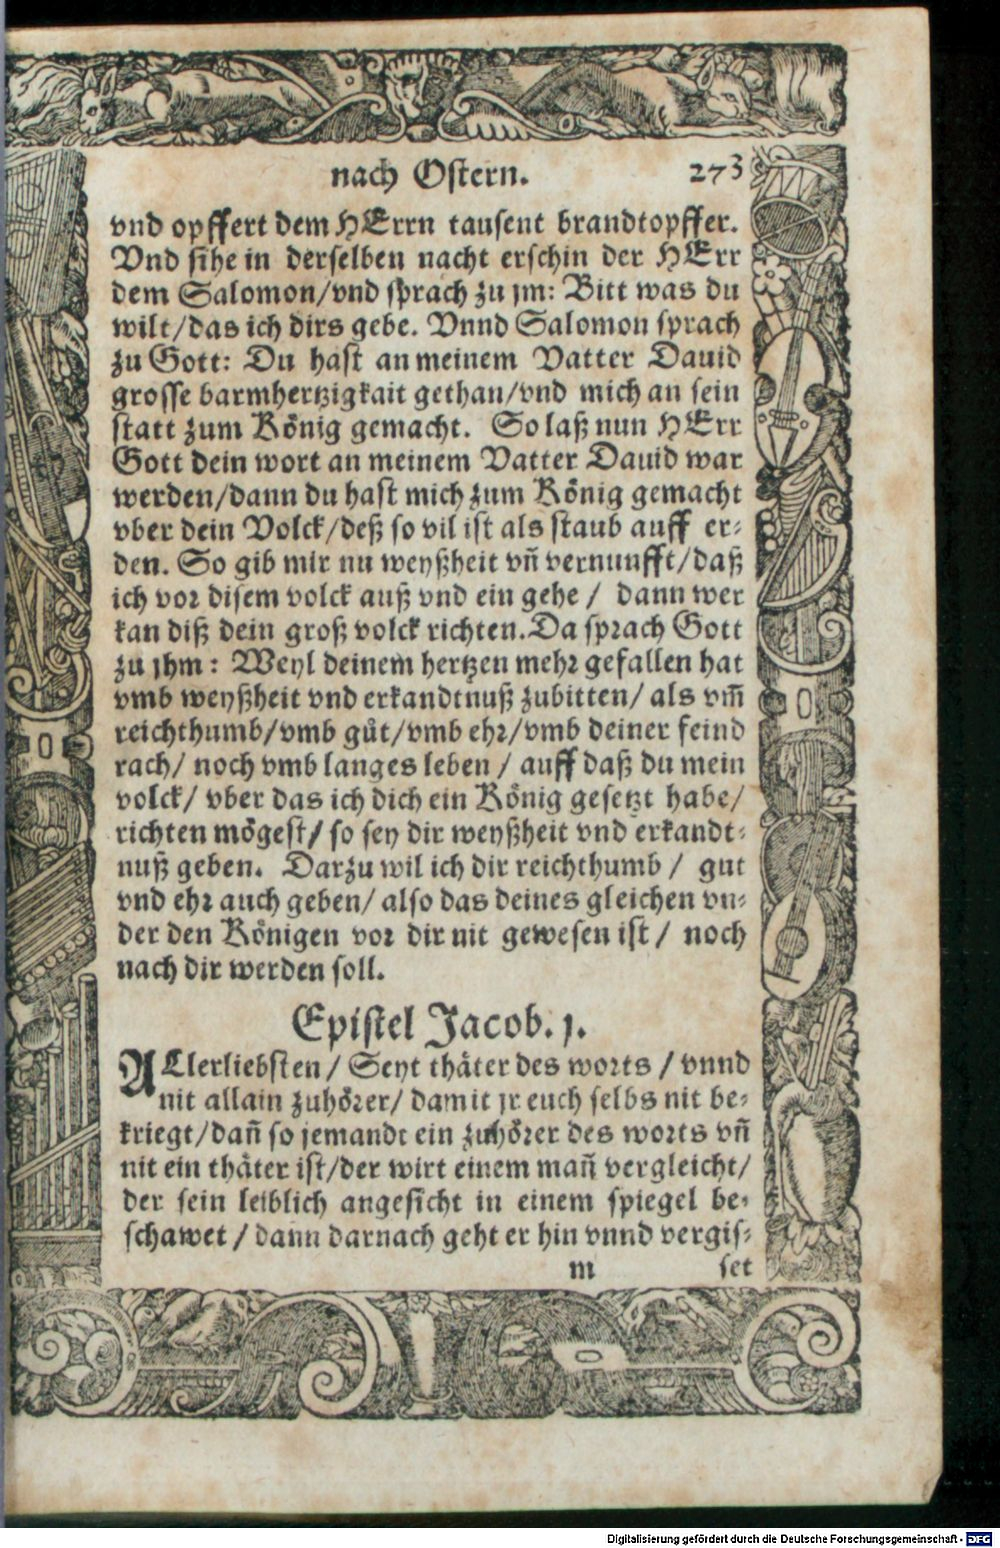 nach Ostern. 273
vnd opffert dem HErrn tausent brandtopffer.
Vnd sihe in derselben nacht erschin der HErr
dem Salomon/vnd sprach zu jm: Bitt was du
wilt/das ich dirs gebe. Vnnd Salomon sprach
zu Gott: Du hast an meinem Vatter Dauid
grosse barmhertzigkait gethan/vnd mich an sein
statt zum König gemacht. So laß nun HErr
Gott dein wort an meinem Vatter Dauid war
werden/dann du hast mich zum König gemacht
vber dein Volck/deß so vil ist als staub auff er-
den. So gib mir nu weyßheit vñ vernunfft/daß
ich vor disem volck auß vnd ein gehe / dann wer
kan diß dein groß volck richten. Da sprach Gott
zu jhm: Weyl deinem hertzen mehr gefallen hat
vmb weyßheit vnd erkandtnuß zubitten/ als vm̄
reichthumb/vmb gůt/vmb ehr/vmb deiner feind
rach/ noch vmb langes leben / auff daß du mein
volck/ vber das ich dich ein König gesetzt habe/
richten mögest/ so sey dir weyßheit vnd erkandt-
nuß geben. Darzu wil ich dir reichthumb / gut
vnd ehr auch geben/ also das deines gleichen vn-
der den Königen vor dir nit gewesen ist / noch
nach dir werden soll.
Epistel Jacob. j.
ALlerliebsten / Seyt thäter des worts / vnnd
nit allain zuhörer/ damit jr euch selbs nit be-
kriegt/dañ so jemandt ein zuhörer des worts vñ
nit ein thäter ist/der wirt einem mañ vergleicht/
der sein leiblich angesicht in einem spiegel be-
schawet / dann darnach geht er hin vnnd vergis-
m set
Digitalisierung gefördert durch die Deutsche Forschungsgemeinschaft - DFG